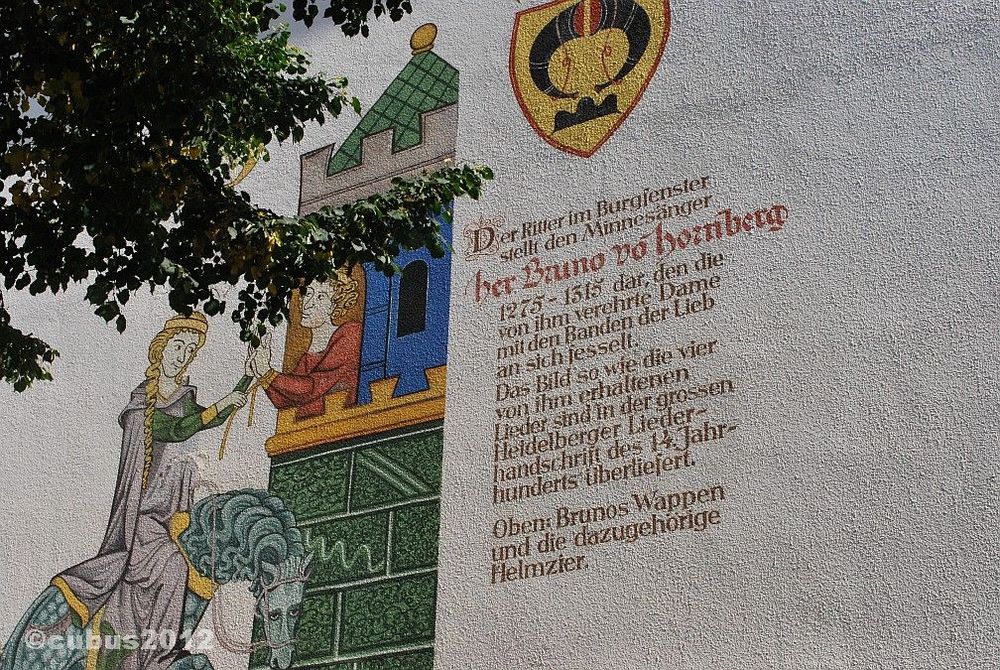 Der Ritter im Burgfenster
stellt den Minnesänger
her Bruno vō hornberg
1275-1315 dar, den die
von ihm verehrte Dame
mit den Banden der Lieb
an sich fesselt.
Das Bild so wie die vier
von ihm erhaltenen
Lieder sind in der grossen
Heidelberger Lieder-
handschrift des 14. Jahr-
hunderts überliefert.
Oben: Brunos Wappen
und die dazugehörige
Helmzier.
©cubus2012